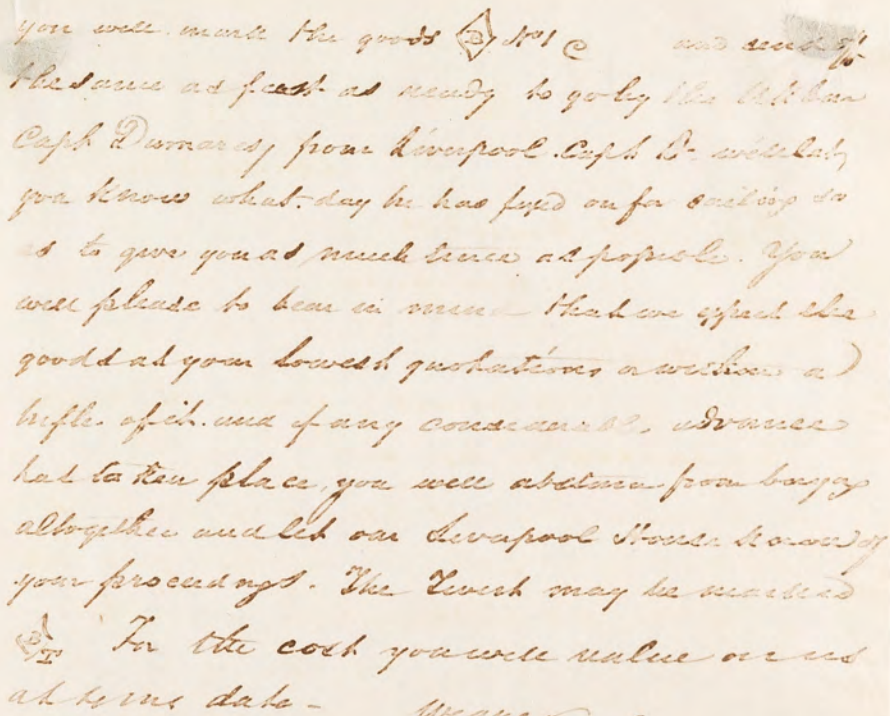 you will mark the goods B No 1 @ and send off
the same as fast as ready to go by the
Capt Dumaresq from Liverpool. Capt D. will let
you know what day he has fixed on for sailing so
as to give you as much time as possible. You
will please to bear in mind that we expect the
goods at your lowest quotations or within a
trifle of it. and if any considerable advance
had taken place, you will abstain from buying
altogether and let our Liverpool House know of
your proceedings. The Twist may be marked
For the cost you will value on us
at date -